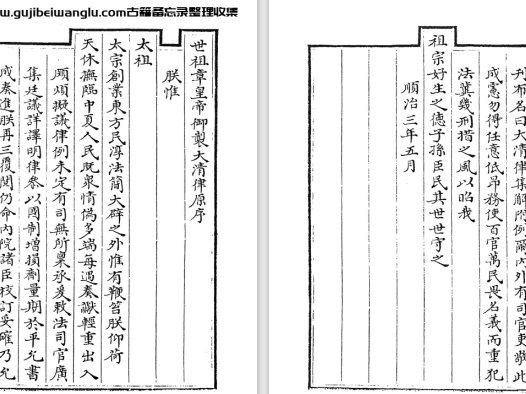 www.gujibeiwanglu.com古籍备忘录整理收集
世祖章皇帝御製大清律原序
朕惟
太祖
太宗創業東方民淳法簡大辟之外惟有鞭笞朕仰荷
天休撫臨中夏人民既衆情偽多端每遇奏讞輕重出入
頗煩擬議律例未定有司無所稟承爰敕法司官廣
集廷議詳譯明律參以國制增損劑量期於平允書
成奏進朕再三覆閱仍命內院諸臣校訂妥確乃允
刊布名曰大清律集解附例爾內外有司官吏敬此
成憲勿得任意低昂務使百官萬民畏名義而重犯
法冀幾刑措之風以昭我
祖宗好生之德子孫臣民其世世守之
順治三年五月